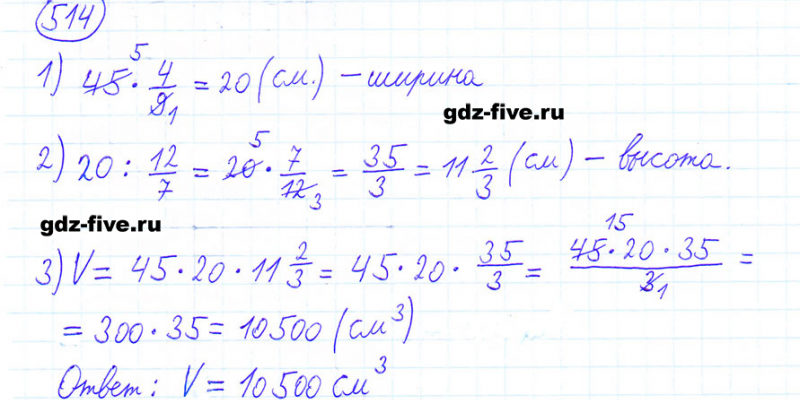 514
1) 45 · 4/9 = 20 (см.) – ширина
5
1
gdz-five.ru
2) 20 : 12/7 = 20 · 7/12 = 35/3 = 11 2/3 (см) – высота.
5
3
gdz-five.ru
3) V = 45 · 20 · 11 2/3 = 45 · 20 · 35/3 = 45 · 20 · 35/3 =
15
1
= 300 · 35 = 10500 (см³)
Ответ: V = 10500 см³